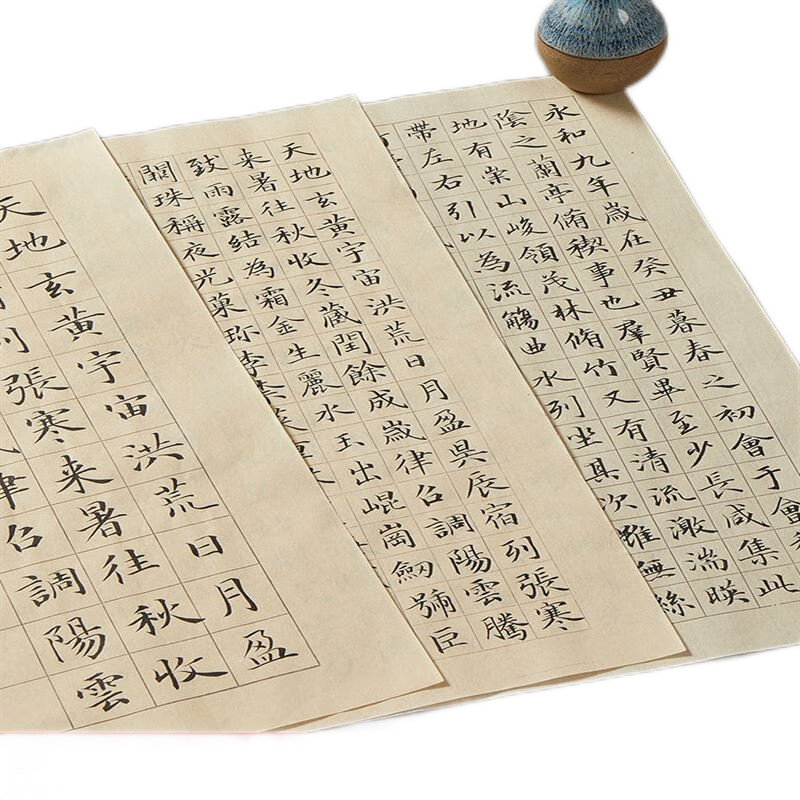 永和九年歲在癸丑暮春之初會于會
陰之蘭亭脩稧事也羣賢畢至少長咸集此
地有崇山峻領茂林脩竹又有清流激湍暎
帶左右引以為流觴曲水列坐其次雖無絲
天地玄黃宇宙洪荒日月盈昃辰宿列張寒
来暑往秋收冬藏閏餘成歲律召調陽雲騰
致雨露結為霜金生麗水玉出崐崗劒號巨
闕珠稱夜光菓珍李柰菜
天地玄黃宇宙洪荒日月盈
列張寒来暑往秋收
律召調陽雲